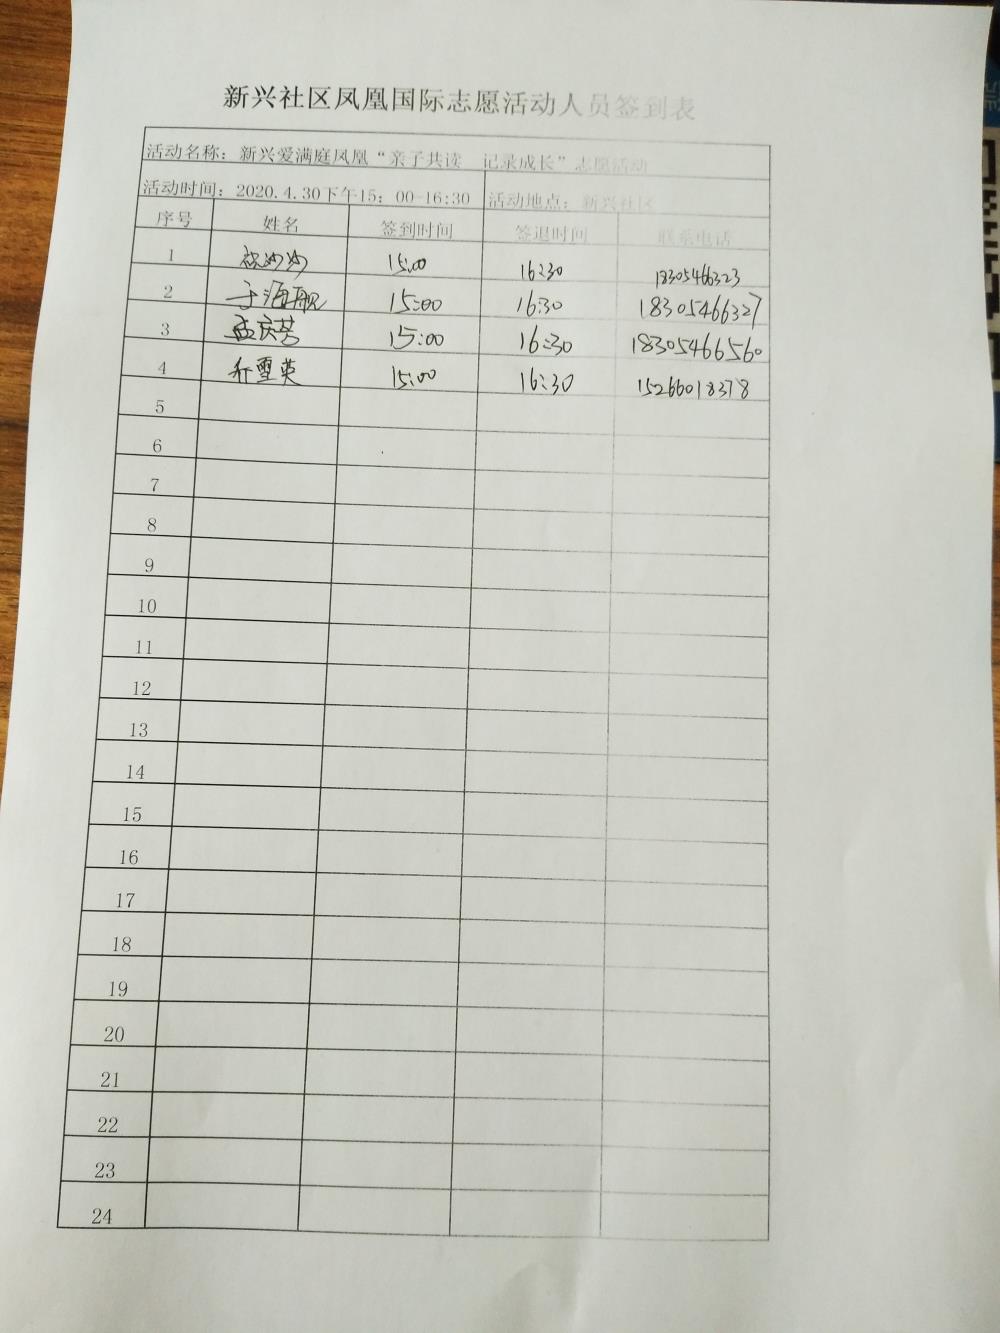 新兴社区凤凰国际志愿活动人员签到表
活动名称：新兴爱满庭凤凰“亲子共读 记录成长”志愿活动
活动时间：2020.4.30下午15：00-16:30 活动地点：新兴社区
序号 姓名 签到时间 签退时间 联系电话
1 祝沙沙 15:00 16:30 18305466323
2 于海舰 15:00 16:30 18305466327
3 孟庆芳 15:00 16:30 18305466560
4 乔雪英 15:00 16:30 15266018378
5
6
7
8
9
10
11
12
13
14
15
16
17
18
19
20
21
22
23
24